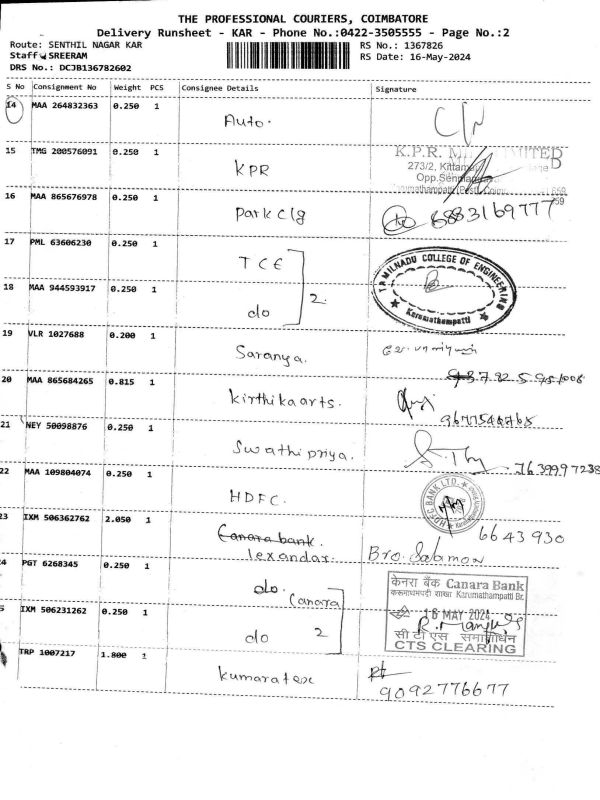 THE PROFESSIONAL COURIERS, COIMBATORE
Delivery Runsheet - KAR - Phone No.:0422-3505555 - Page No.:2
Route: SENTHIL NAGAR KAR
RS No.: 1367826
Staff: SREERAM
RS Date: 16-May-2024
DRS No.: DCJB136782602
S No Consignment No Weight PCS Consignee Details Signature
14 MAA 264832363 0.250 1 Auto.
15 TMG 200576091 0.250 1 KPR
K.P.R. MITED
273/2, Kittam
Opp.Senni
16 MAA 865676978 0.250 1 Park clg 6883169777
17 PML 63606230 0.250 1 TCE
TAMILNADU COLLEGE OF ENGINEERING
Karumathampatti
2.
18 MAA 944593917 0.250 1 do
19 VLR 1027688 0.200 1 Saranya.
20 MAA 865684265 0.815 1 Kirthika arts.
21 NEY 50098876 0.250 1 Swathi priya.
22 MAA 109804074 0.250 1 HDFC.
HDFC BANK LTD.
23 IXM 506362762 2.050 1 Canara bank. 6643930
lexandar. Bro. Salamon
24 PGT 6268345 0.250 1 do. Canara
केनरा बैंक Canara Bank
करूमाथमपट्टी शाखा Karumathampatti Br.
16 MAY 2024
25 IXM 506231262 0.250 1 do 2
सी टी एस समाशोधन
CTS CLEARING
TRP 1007217 1.800 1 Kumaratex
9092776677